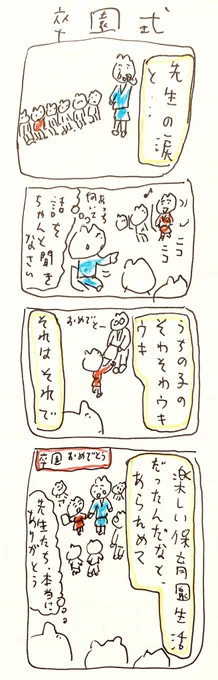 卒園式
先生の涙
と…
あっち
向いて
話を
ちゃんと聞き
なさい
♪
ニコ
ニコ
うちの子の
そわそわウキ
ウキ
おめでとー
それはそれで
楽しい保育園生活
だったんだなと、
あらためて
卒園おめでとう
先生たち、本当に
ありがとう